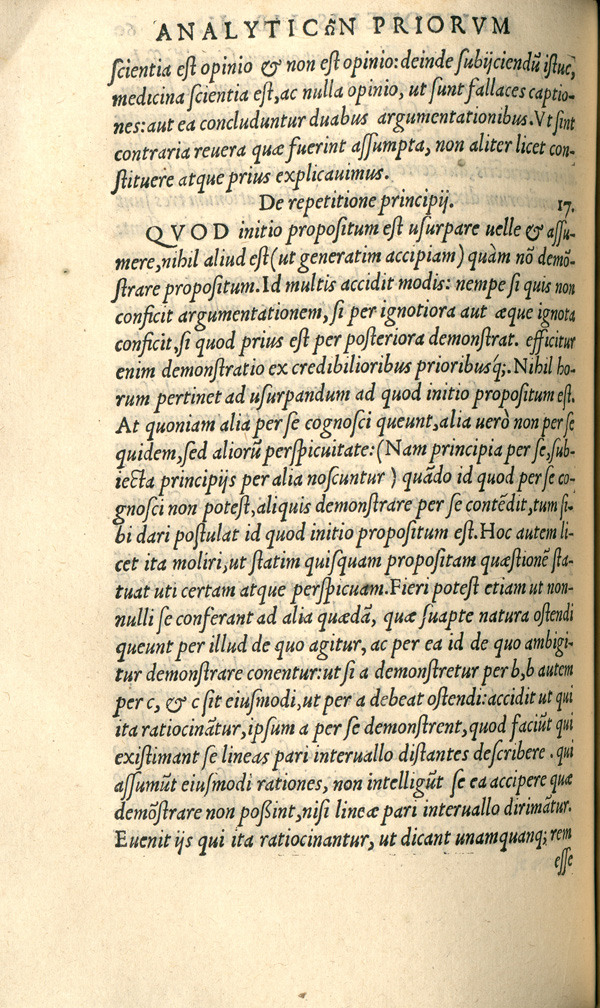 ANALYTICῶN PRIORVM
scientia est opinio & non est opinio: deinde subijciendũ istuc,
medicina scientia est, ac nulla opinio, ut sunt fallaces captio-
nes: aut ea concluduntur duabus argumentationibus. Vt sint
contraria reuera quæ fuerint assumpta, non aliter licet con-
stituere atque prius explicauimus.
De repetitione principij. 17.
QVOD initio propositum est usurpare uelle & assu-
mere, nihil aliud est (ut generatim accipiam) quàm nõ demõ-
strare propositum. Id multis accidit modis: nempe si quis non
conficit argumentationem, si per ignotiora aut æque ignota
conficit, si quod prius est per posteriora demonstrat. efficitur
enim demonstratio ex credibilioribus prioribusq́;. Nihil ho-
rum pertinet ad usurpandum ad quod initio propositum est.
At quoniam alia per se cognosci queunt, alia uerò non per se
quidem, sed aliorũ perspicuitate: (Nam principia per se, sub-
iecta principijs per alia noscuntur) quãdo id quod per se co-
gnosci non potest, aliquis demonstrare per se contẽdit, tum si-
bi dari postulat id quod initio propositum est. Hoc autem li-
cet ita moliri, ut statim quisquam propositam quæstionẽ sta-
tuat uti certam atque perspicuam. Fieri potest etiam ut non-
nulli se conferant ad alia quædã, quæ suapte natura ostendi
queunt per illud de quo agitur, ac per ea id de quo ambigi-
tur demonstrare conentur: ut si a demonstretur per b, b autem
per c, & c sit eiusmodi, ut per a debeat ostendi: accidit ut qui
ita ratiocinãtur, ipsum a per se demonstrent, quod faciũt qui
existimant se lineas pari interuallo distantes describere. qui
assumũt eiusmodi rationes, non intelligũt se ea accipere quæ
demõstrare non poßint, nisi lineæ pari interuallo dirimãtur.
Euenit ijs qui ita ratiocinantur, ut dicant unamquanq; rem
esse